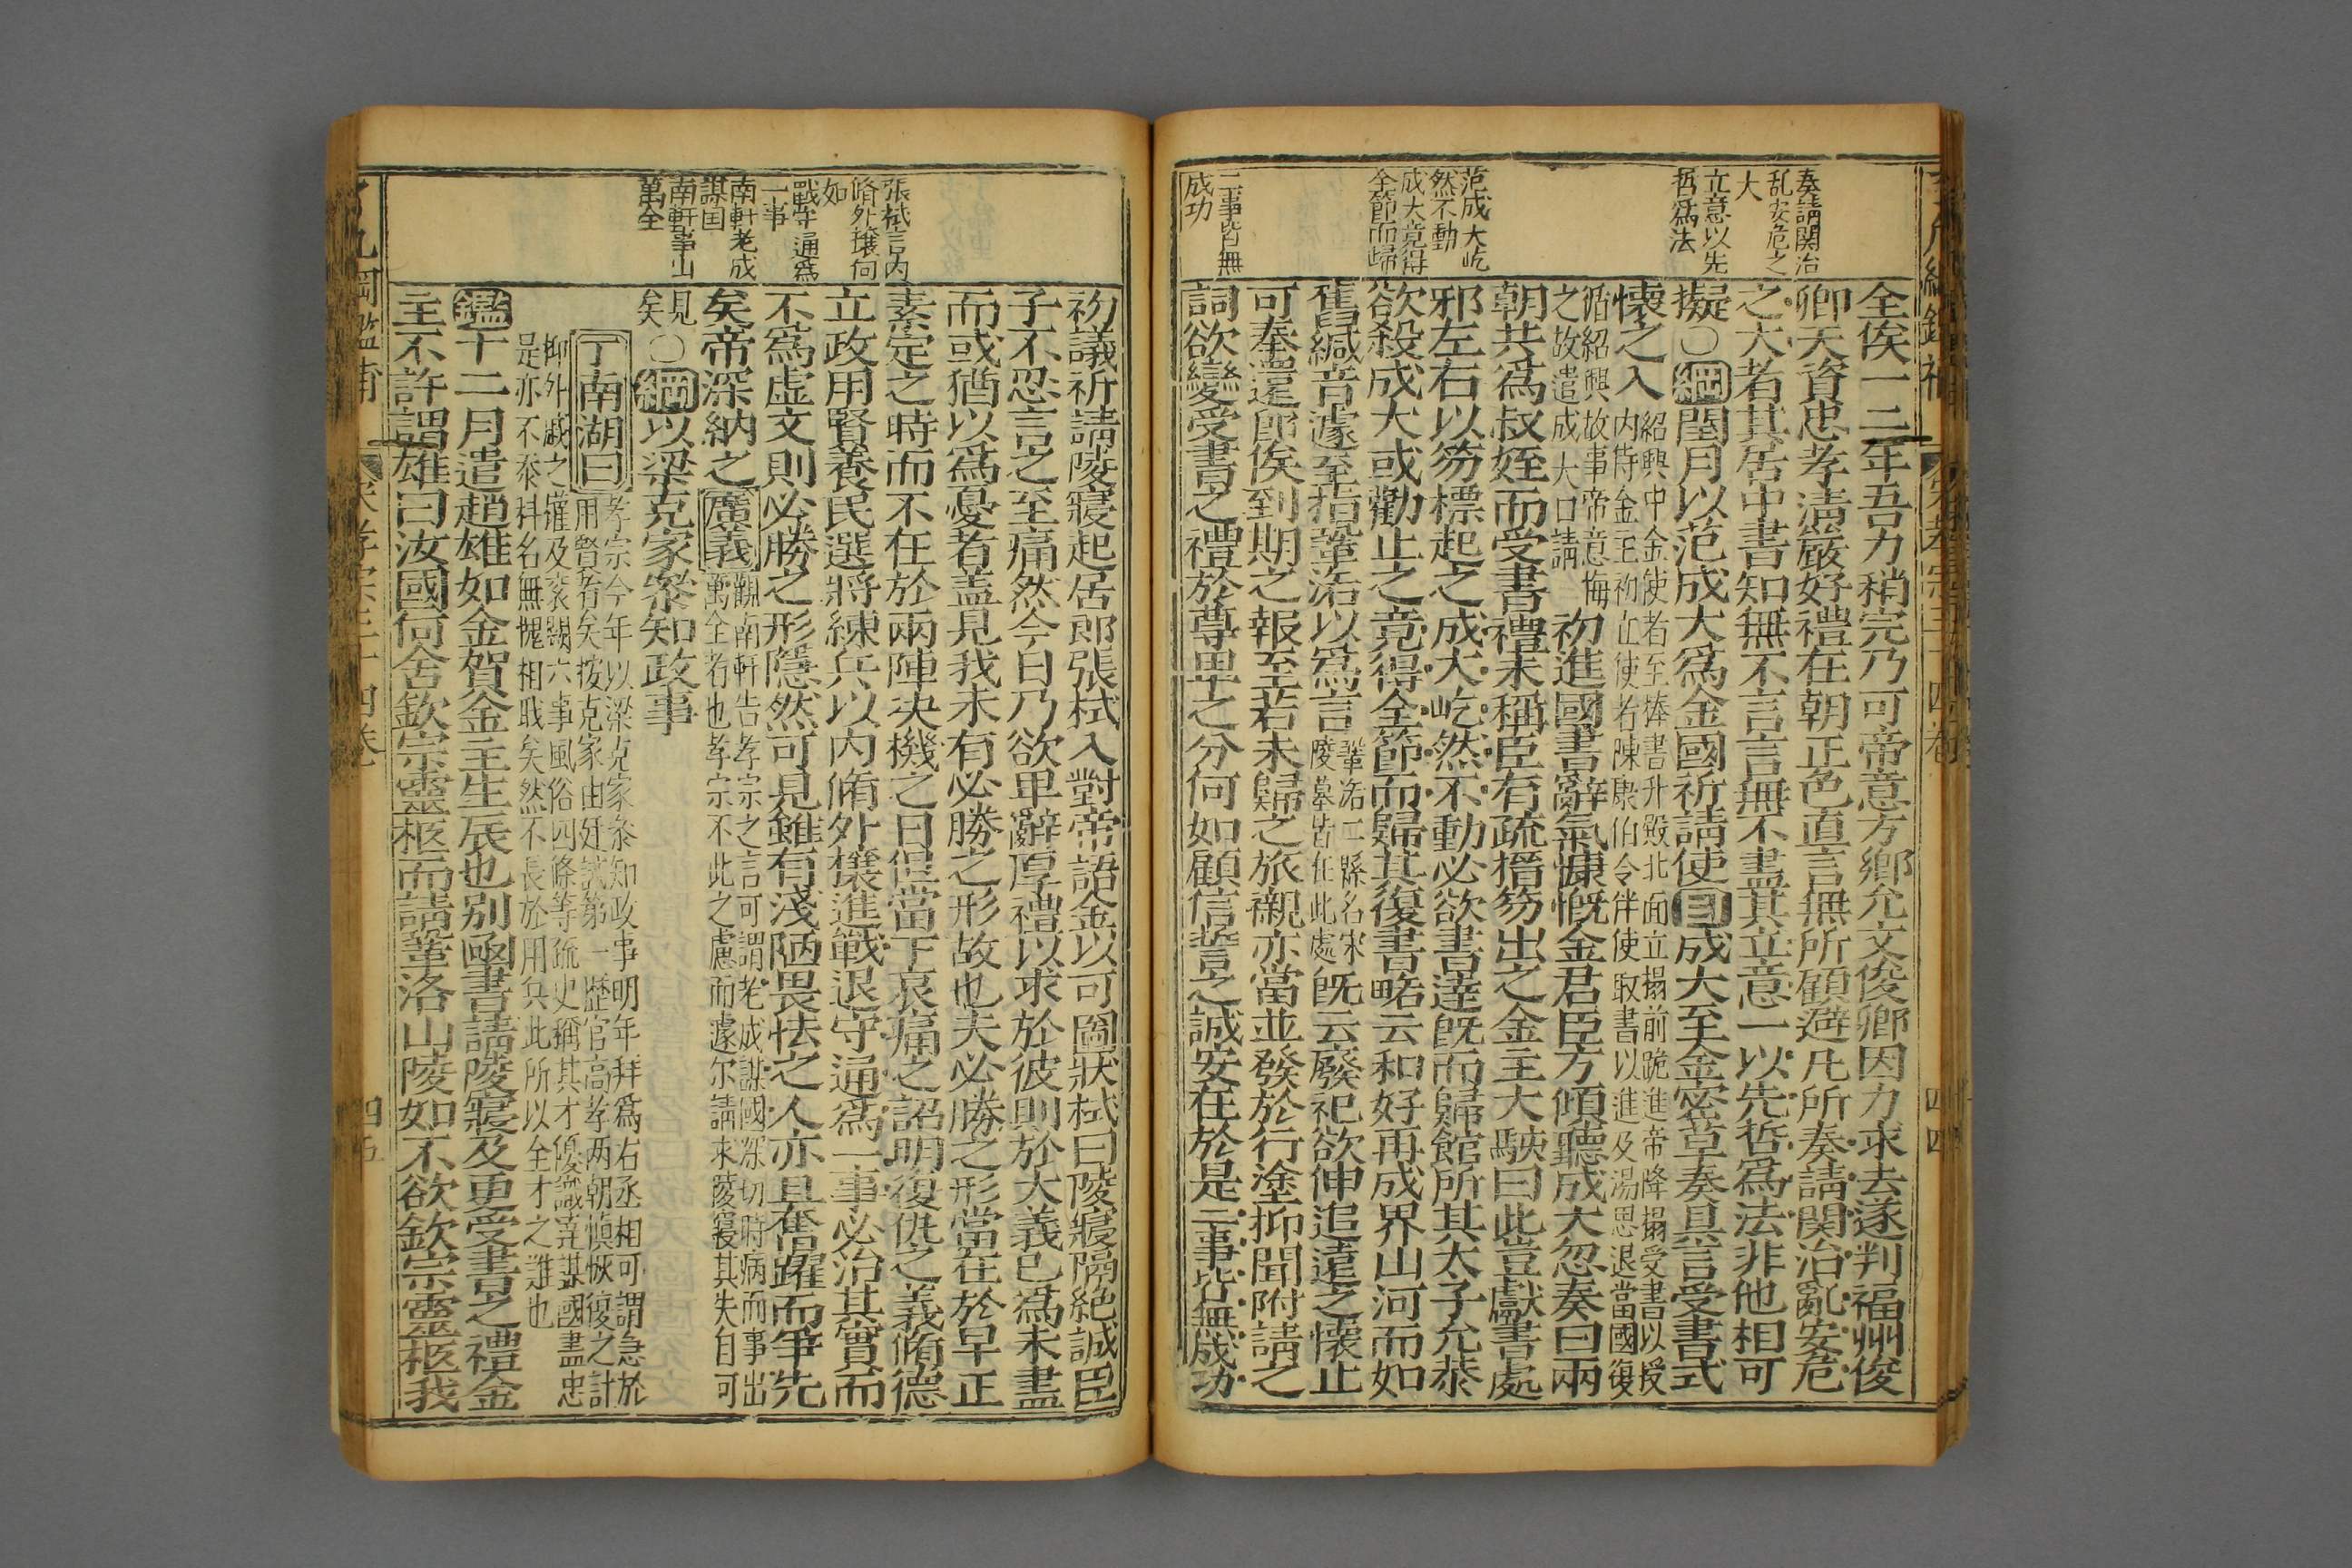 奏請関治
乱安危之
大
立意以先
哲爲法
范成大屹
然不動
成大竟得
全節而歸
二事皆無
成功
全俟一二年吾力稍完乃可帝意方鄉允文俊卿因力求去遂判福州俊
卿天資忠孝清嚴好禮在朝正色直言無所顧避凡所奏請関治亂安危
之大者其居中書知無不言言無不盡其立意一以先哲爲法非他相可
擬〇綱閏月以范成大爲金國祈請使目成大至金密草奏具言受書式
懷之入
紹興中金使者至捧書升殿北面立榻前跪進帝降榻受書以授
内侍金主初立使者陳康伯令伴使取書以進及湯思退當國復
循紹興故事帝意悔
之故遣成大口請
初進國書辭氣慷慨金君臣方傾聽成大忽奏曰兩
朝共爲叔姪而受書禮未稱臣有疏搢笏出之金主大駭曰此豈獻書處
邪左右以笏標起之成大屹然不動必欲書達既而歸館所其太子允恭
欲殺成大或勸止之竟得全節而歸其復書略云和好再成界山河而如
舊緘音遽至指鞏洛以爲言
鞏洛二縣名宋
陵墓皆在此處
既云廢祀欲伸追遠之懷止
可奉遷即俟到期之報至若未歸之旅櫬亦當並發於行塗抑聞附請之
詞欲變受書之禮於尊卑之分何如顧信誓之誠安在於是二事皆無成功
四四
張栻言内
脩外攘何
如
戰守通爲
一事
南軒老成
謀国
南軒事出
萬全
初議祈請陵寢起居郎張栻入對帝語金以可圖狀栻曰陵寢隔絶誠臣
子不忍言之至痛然今日乃欲卑辭厚禮以求於彼則於大義已爲未盡
而或猶以爲憂者盖見我未有必勝之形故也夫必勝之形當在於早正
素定之時而不在於兩陣决機之日但當下哀痛之詔明復仇之義脩德
立政用賢養民選將練兵以内脩外攘進戰退守通爲一事必治其實而
不爲虚文則必勝之形隱然可見雖有淺陋畏怯之人亦且奮躍而爭先
矣帝深納之廣義
觀南軒告孝宗之言可謂老成謀國深切時病而事出
萬全者也孝宗不此之慮而遽尔請求陵寢其失自可
見
矣
〇綱以梁克家叅知政事
丁南湖曰
孝宗今年以梁克家叅知政事明年拜爲右丞相可謂急於
用賢者矣按克家由廷試第一歷官高孝两朝慎恢復之計
抑外戚之權及衮闕六事風俗四條等疏史稱其才優識逹謀國盡忠
是亦不忝科名無愧相職矣然不長於用兵此所以全才之難也
鑑十二月遣趙雄如金賀金主生辰也别凾書請陵寢及更受書之禮金
主不許謂雄曰汝國何舍欽宗靈柩而請鞏洛山陵如不欲欽宗靈柩我
四五